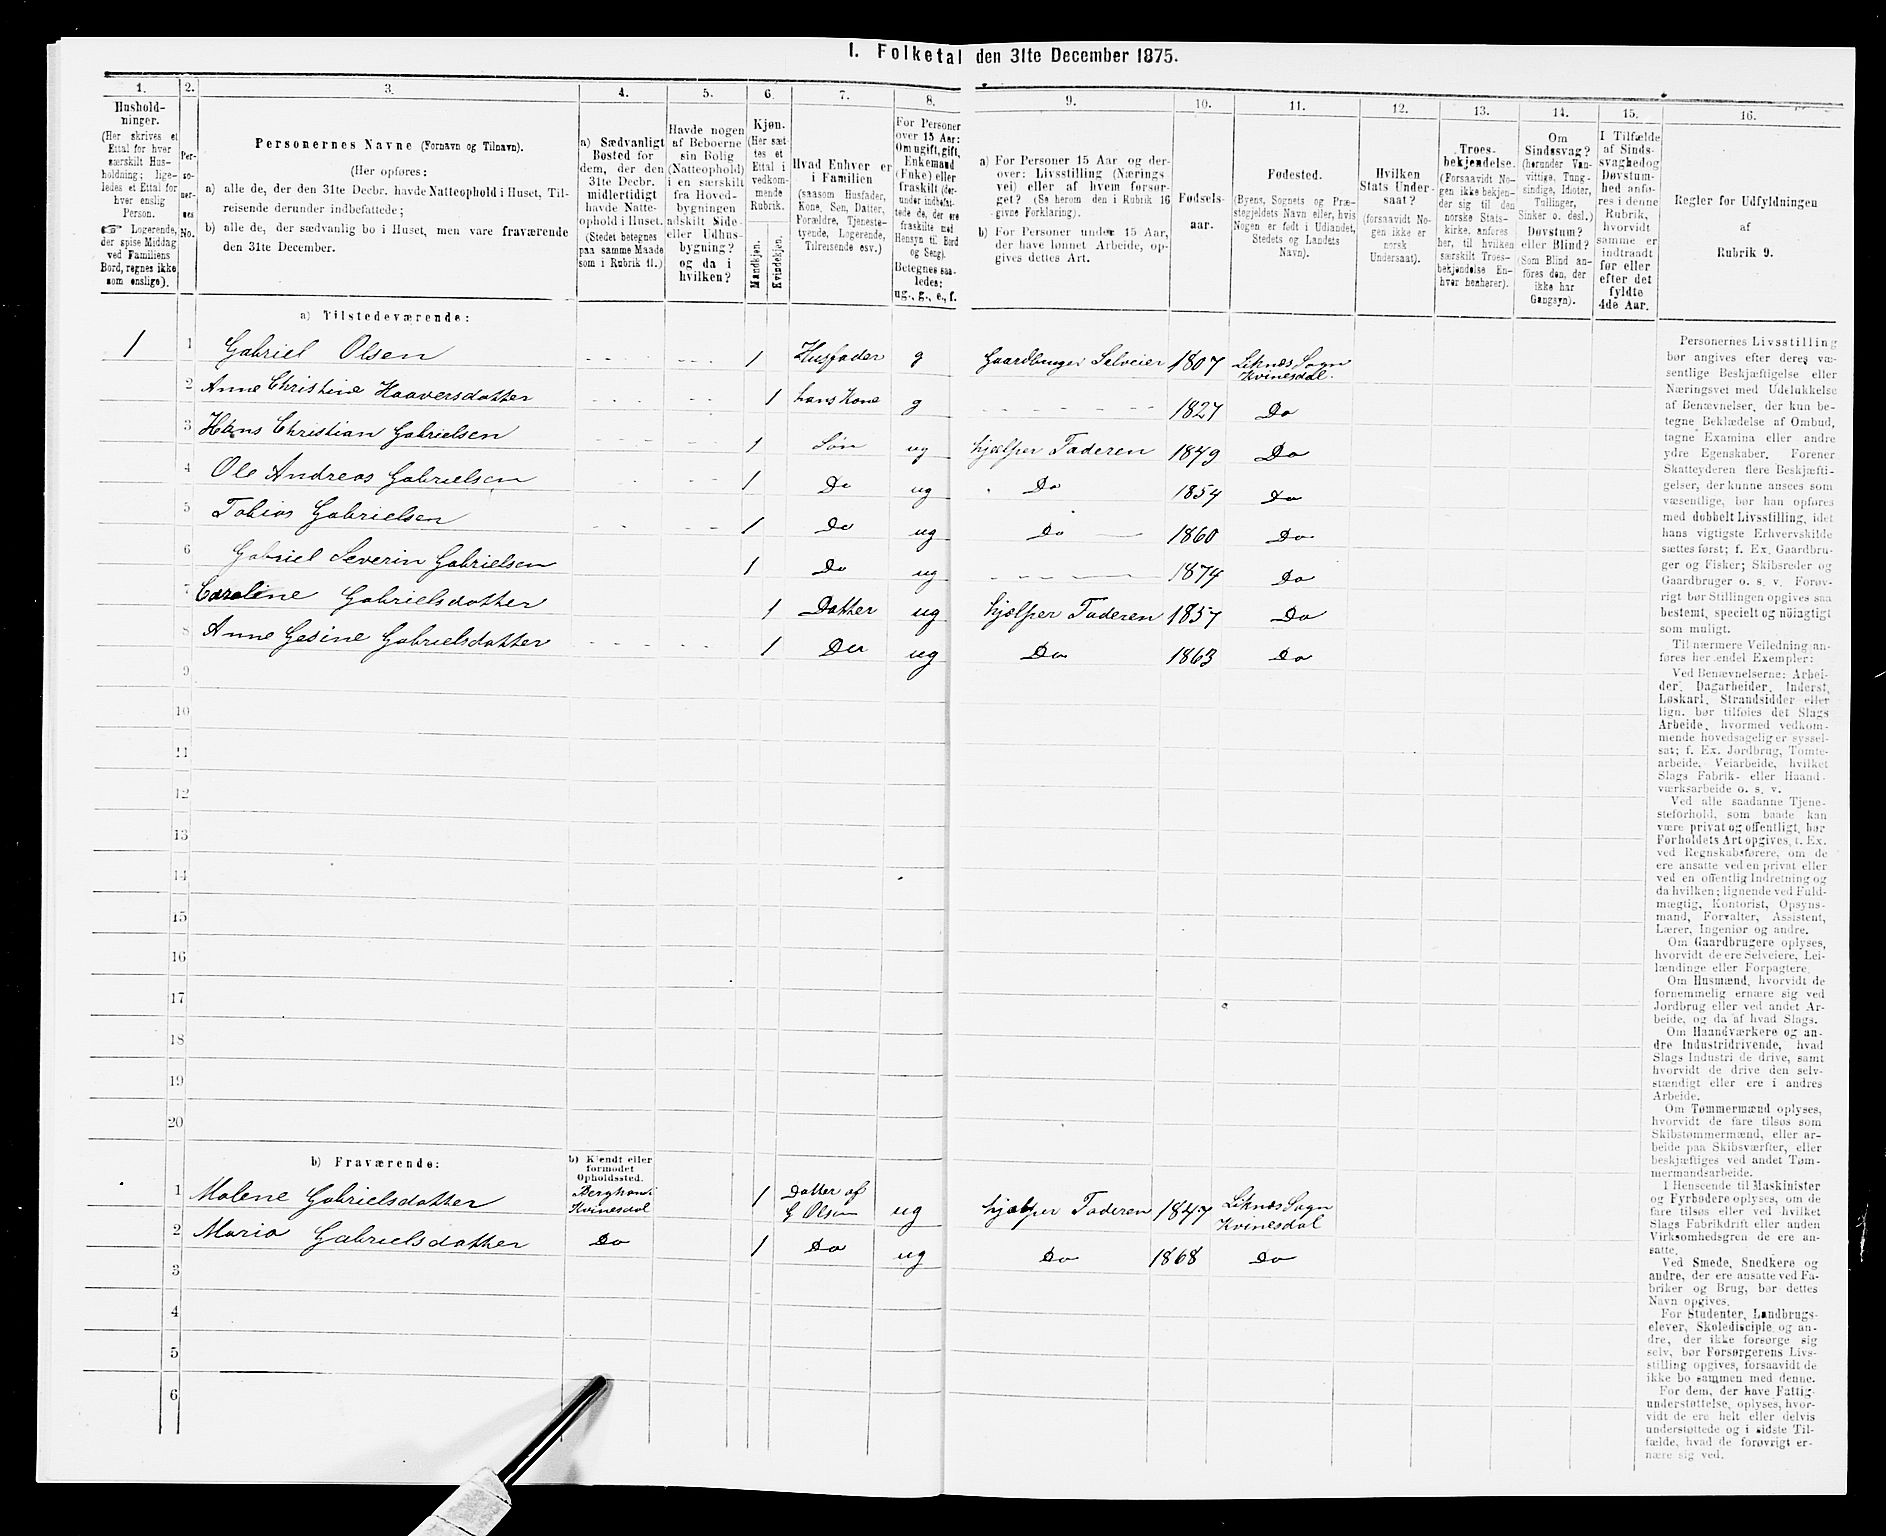 1. Folketal den 31te December 1875.
1. 2. 3. 4. 5. 6. 7. 8. 9. 10. 11. 12. 13. 14. 15. 16.
Hushold-
ninger.
(Her skrives et
Ettal for hver
særskilt Hus-
holdning; lige-
ledes et Ettal for
hver enslig
Person.
☞ Logerende,
der spise Middag
ved Familiens
Bord, regnes ikke
som enslige).
Per-
so-
ner-
nes
No.
Personernes Navne (Fornavn og Tilnavn).
(Her opføres:
a) alle de, der den 31te Decbr. havde Natteophold i Huset, Til-
reisende derunder indbefattede;
b) alle de, der sædvanlig bo i Huset, men vare fraværende
den 31te December.
a) Sædvanligt
Bosted for
dem, der den
31te Decbr.
midlertidigt
havde Natte-
ophold i Huset.
(Stedet betegnes
paa samme Maade
som i Rubrik 11.)
Havde nogen
af Beboerne
sin Bolig
(Natteophold)
i en særskilt
fra Hoved-
bygningen
adskilt Side-
eller Udhus-
bygning?
og da i
hvilken?
Kjøn.
(Her sæt
tes et
Ettal i
vedkom-
mende
Rubrik.
Mandkjøn.
Kvindekjøn.
Hvad Enhver er
i Familien
(saasom Husfader,
Kone, Søn, Datter,
Forældre, Tjeneste-
tyende, Logerende,
Tilreisende osv.)
For Personer
over 15 Aar:
Om ugift, gift,
Enkemand
(Enke) eller
fraskilt (der-
under indbefat-
tede de, der ere
fraskilte med
Hensyn til Bord
og Seng).
Betegnes saa-
ledes:
ug., g., e., f.
a) For Personer 15 Aar og der-
over: Livsstilling (Nærings
vei) eller af hvem forsør-
get? (Se herom den i Rubrik 16
givne Forklaring).
b) For Personer under 15 Aar,
der have lønnet Arbeide, op-
gives dettes Art.
Fødsels-
aar.
Fødested.
(Byens, Sognets og Præ-
stegjeldets Navn eller, hvis
Nogen er født i Udlandet,
Stedets og Landets
Navn).
Hvilken
Stats Under-
saat?
(forsaavidt No-
gen ikke er
norsk
Undersaat).
Troes-
bekjendelse.
(Forsaavidt No-
gen ikke bekjen-
der sig til den
norske Stats-
kirke, anføres
her, til hvilken
særskilt Troes-
bekjendelse En-
hver henhører).
Om
Sindssvag?
(herunder Van-
vittige, Tung-
sindige, Idioter,
Tullinger,
Sinker o. desl.)
Døvstum?
eller Blind?
(Som Blind an-
føres den, der
ikke har
Gangsyn).
I Tilfælde
af Sinds-
svaghedog
Døvstum-
hed anfø-
res i denne
Rubrik,
hvorvidt
samme er
indtraadt
før eller
efter det
fyldte
4de Aar.
Regler for Udfyldningen
af
Rubrik 9.
a) Tilstedeværende:
1 1 Gabriel Olsen 1 Husfader g Gaardbruger Selveier 1807 Liknes Sogn
Kvinesdal.
2 Anne Christine Haaversdatter 1 hans Kone g 1827 Do
3 Hans Christian Gabrielsen 1 Søn ug hjælper Faderen 1849 Do
4 Ole Andreas Gabrielsen 1 Do ug Do 1854 Do
5 Tobias Gabrielsen 1 Do ug Do 1860 Do
6 Gabriel Severin Gabrielsen 1 Do ug 1874 Do
7 Caroline Gabrielsdatter 1 Datter ug hjælper Faderen 1857 Do
8 Anne Gesine Gabrielsdatter 1 Do ug Do 1863 Do
9
10
11
12
13
14
15
16
17
18
19
20
b) Fraværende:
b) Kjendt eller
formodet
Opholdssted.
1 Malene Gabrielsdatter
Kvinesdal 1 Datter af
G Olsen ug hjælper Faderen 1847 Liknes Sogn
Kvinesdal
2 Maria Gabrielsdatter Do 1 Do ug Do 1868 Do
3
4
5
6
Personernes Livsstilling
bør angives efter deres væ-
sentlige Beskjæftigelse eller
Næringsvei med Udelukkelse
af Benævnelser, der kun be-
tegne Beklædelse af Ombud,
tagne Examina eller andre
ydre Egenskaber. Forener
Skatteyderen flere Beskjæfti-
gelser, der kunne ansees som
væsentlige, bør han opføres
med dobbelt Livsstilling, idet
hans vigtigste Erhvervskilde
sættes først; f. Ex. Gaardbru-
ger og Fisker; Skibsreder og
Gaardbruger o. s. v. Forøv-
rigt bør Stillingen opgives saa
bestemt, specielt og nøiagtigt
som muligt.
Til nærmere Veiledning an-
føres her endel Exempler:
Ved Benævnelserne: Arbei-
der, Dagarbeider, Inderst,
Løskarl, Strandsidder eller
lign. bør tilføies det Slags
Arbeide, hvormed vedkom-
mende hovedsagelig er syssel-
sat; f. Ex. Jordbrug, Tømte-
arbeide, Veiarbeide, hvilket
Slags Fabrik- eller Haand-
værksarbeide o. s. v.
Ved alle saadanne Tjene-
steforhold, som baade kan
være privat og offentligt, bør
Forholdets Art opgives, f. Ex.
ved Regnskabsførere, om de
ere ansatte ved en privat eller
ved en offentlig Indretning og
da hvilken; lignende ved Fuld-
mægtig, Kontorist, Opsyns-
mand, Forvalter, Assistent,
Lærer, Ingeniør og andre.
Om Gaardbrugere oplyses,
hvorvidt de ere Selveiere, Lei-
lændinge eller Forpagtere.
Om Husmænd, hvorvidt de
fornemmelig ernære sig ved
Jordbrug eller ved andet Ar-
beide, og da af hvad Slags.
Om Haandværkere og an-
dre Industridrivende, hvad
Slags Industri de drive, samt
hvorvidt de drive den selv-
stændigt eller ere i andres
Arbeide.
Om Tømmermænd oplyses,
hvorvidt de fare tilsøs som
Skibstømmermænd, eller ar-
beide paa Skibsværfter, eller
beskjæftiges ved andet Tøm-
mermandsarbeide.
I Henseende til Maskinister
og Fyrbødere oplyses, om de
fare tilsøs eller ved hvilket
Slags Fabrikdrift eller anden
Virksomhedsgren de ere an-
satte.
Ved Smede, Snedkere og
andre, der ere ansatte ved Fa-
briker og Brug, bør dettes
Navn opgives.
For Studenter, Landbrugs-
elever, Skoledisciple og an-
dre, der ikke forsørge sig
selv, bør Forsørgerens Livs-
stilling opgives, forsaavidt de
ikke bo sammen med denne.
For dem, der have Fattig-
understøttelse, oplyses, hvor-
vidt de ere helt eller delvis
understøttede og i sidste Til-
fælde, hvad de forøvrigt er-
nære sig ved.